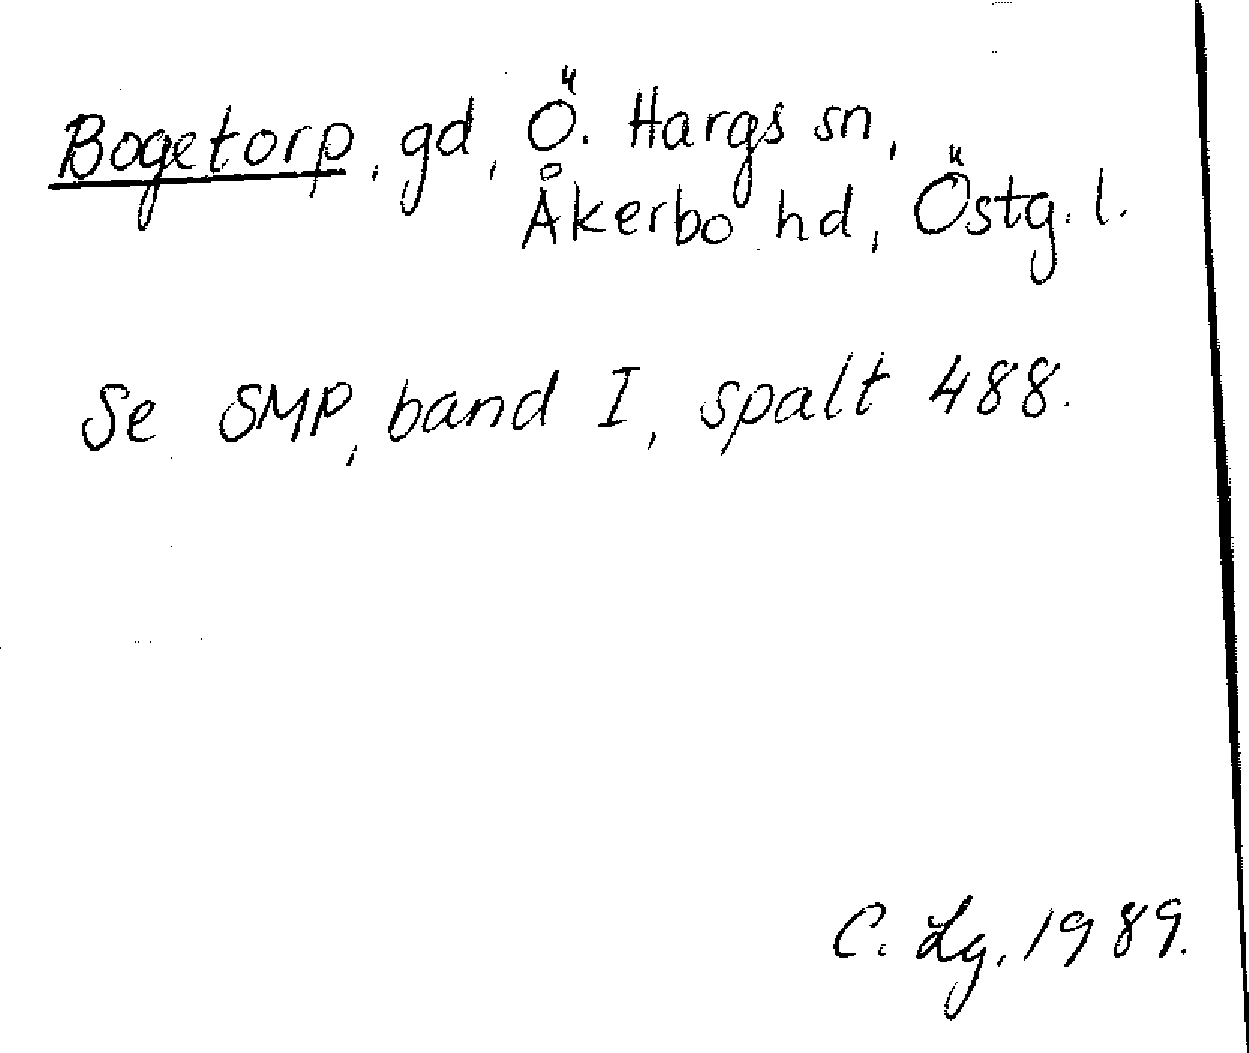 Bogetorp, gd, Ö. Hargs sn,
Åkerbo hd, Östg. l.
Se SMP, band I, spalt 488.
C. Lg. 1989.